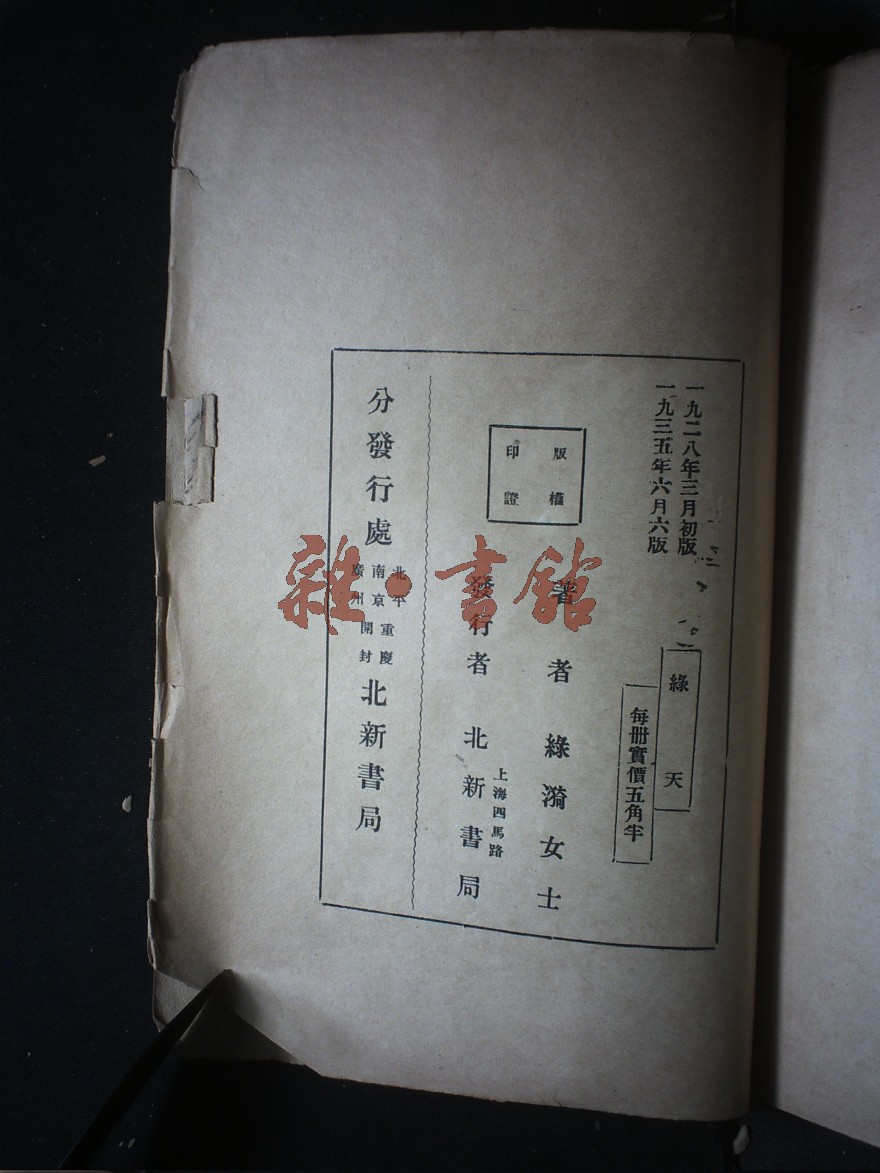 一九二八年三月初版
一九三五年六月六版
綠天
每冊實價五角半
版權
印證
著者 綠漪女士
上海四馬路
發行者 北新書局
分發行處
北平 重慶
南京 開封
廣州
北新書局
雜·書館